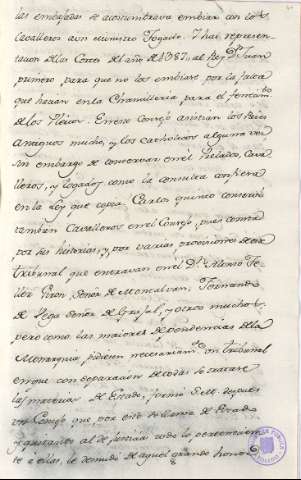 las embajadas se acostumbrava embiar con los
Cavalleros a un Ministro Togado. I hai represen-
tacion de las Cortes del año de 1387, al Rey Dn. Juan
primero para que no los embiase por la falta
que hacian en la Chancilleria para el
de los Pleitos. En este Consejo asistian los Reies
antiguos mucho, y los Catholicos alguna vez
sin embargo de conservar en el Prelados, Cava-
lleros, y Togados como la consulta confiesa
en la Ley que copia. Carlos quinto conservó
tambien Cavalleros en el Consejo, pues consta
por las historias, y por varias provisiones de este
tribunal que entravan en el Dn. Alonso Te-
llez Giron, Señor de Montalvan, Fernando
de Vega Señor de Grajal, y otros muchos,
pero como las maiores dependencias de la
Monarquia, pidiesen un tribunal
en que con separacion de todas se tratase
las materias de Estado, formó S.M. despues
un Consejo que por esto se llama de Estado
y quitando al de justicia todo lo perteneciente
te a ellas, le desnudó de aquel grande honor